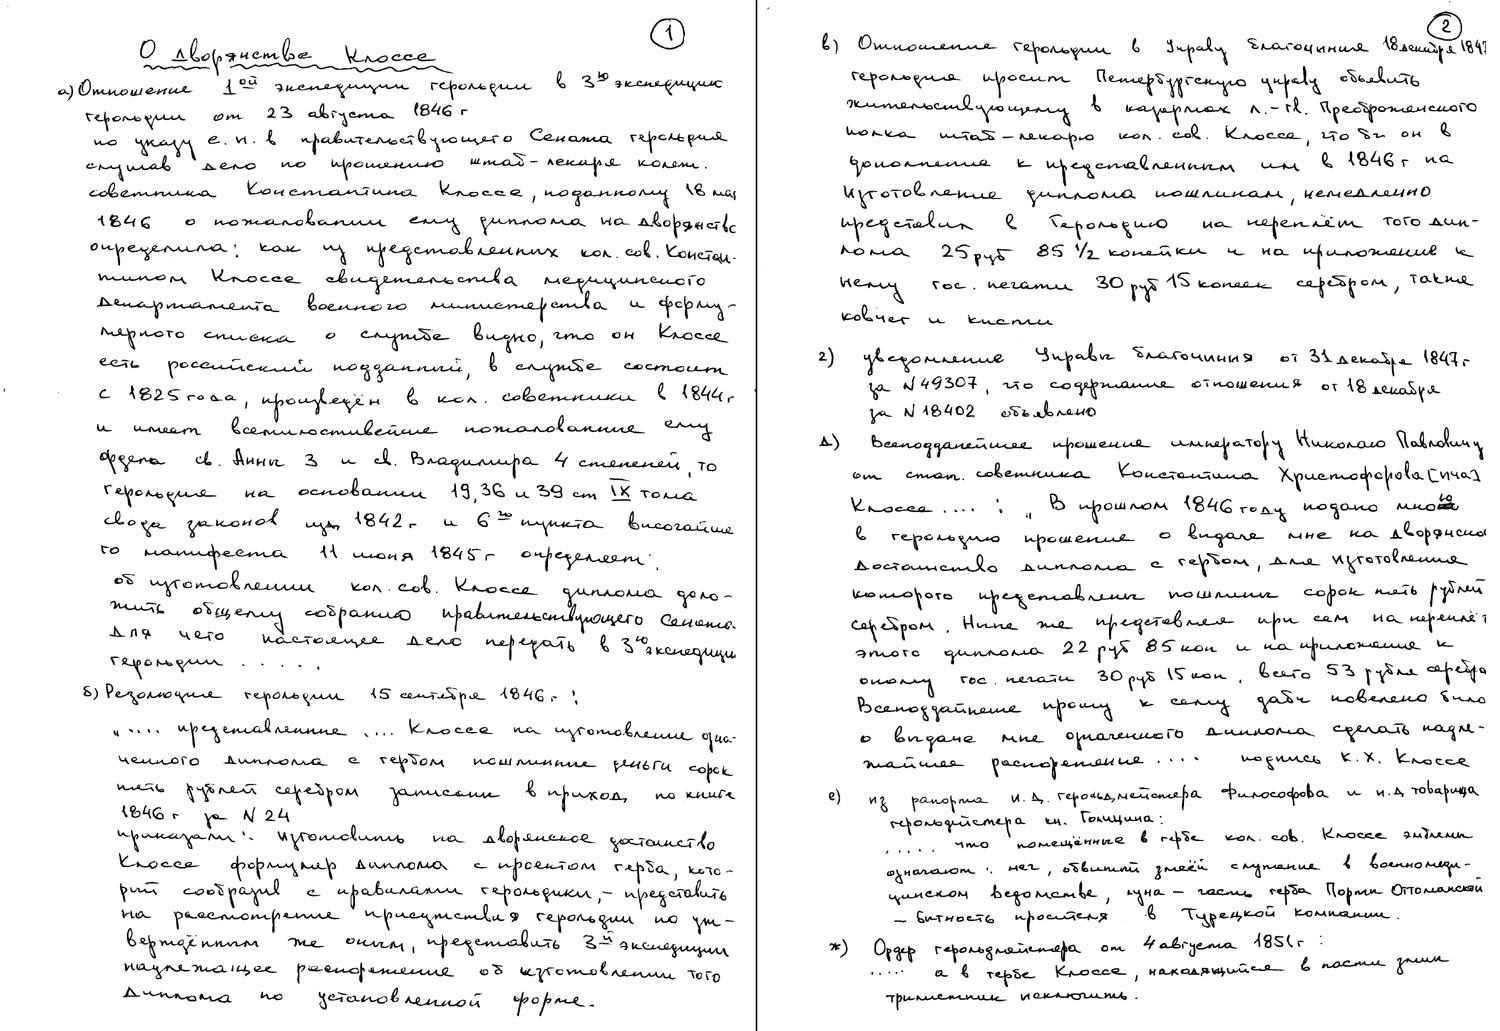 1
О дворянстве Клоссе
а) Отношение 1ой экспедиции герольдии в 3ю экспедицию
герольдии от 23 августа 1846 г
по указу е. и. в правительствующего Сената герольдия
слушав дело по прошению штаб-лекаря колеж.
советника Константина Клоссе, поданному 18 мая
1846 о пожаловании ему диплома на дворянство
определила: как из представленных кол. сов. Констан-
тином Клоссе свидетельства медицинского
департамента военного министерства и форму-
лярного списка о службе видно, что он Клоссе
есть российский подданный, в службе состоит
с 1825 года, произведён в кол. советники в 1844 г
и имеет всемилостивейше пожалованные ему
ордена св. Анны 3 и св. Владимира 4 степеней, то
герольдия на основании 19, 36 и 39 ст IX тома
свода законов изд 1842 г и 6го пункта высочайше
го манифеста 11 июня 1845 г определяет:
об изготовлении кол. сов. Клоссе диплома доло-
жить общему собранию правительствующего Сената.
Для чего настоящее дело передать в 3ю экспедици
герольдии . . . . .
б) Резолюция герольдии 15 сентября 1846 г :
„ .... представленные .... Клоссе на изготовление озна-
ченного диплома с гербом пошлинные деньги сорок
пять рублей серебром записаны в приход по книге
1846 г за N 24
приказали: изготовить на дворянское достоинство
Клоссе формуляр диплома с проектом герба, кото-
рый сообразив с правилами герольдики, - представить
на рассмотрение присутствия герольдии по ут-
верждённым же оным, представить 3ей экспедиции
надлежащее распоряжение об изготовлении того
диплома по установленной форме.
2
в) Отношение герольдии в Управу благочиния 18 декабря 1847
герольдия просит Петербургскую управу объявить
жительствующему в казармах л.-гв. Преображенского
полка штаб-лекарю кол. сов. Клоссе, что бы он в
дополнение к представленным им в 1846 г на
изготовление диплома пошлинам, немедленно
представил в Герольдию на переплёт того дип-
лома 25 руб 85 1/2 копейки и на приложение к
нему гос. печати 30 руб 15 копеек серебром, также
ковчег и кисти
г) уведомление Управы благочиния от 31 декабря 1847 г
за N 49307, что содержание отношения от 18 декабря
за N 18402 объявлено
д) Всеподданейшее прошение императору Николаю Павловичу
от стат. советника Константина Христофорова [ича]
Клоссе .... : „ В прошлом 1846 году подано мною
в герольдию прошение о выдаче мне на дворянско
достоинство диплома с гербом, для изготовления
которого представлены пошлины сорок пять рублей
серебром. Ныне же представляя при сем на переплёт
этого диплома 22 руб 85 коп и на приложение к
оному гос. печати 30 руб 15 коп, всего 53 рубля серебро
Всеподдайнеше прошу к сему дабы повелено было
о выдаче мне означенного диплома сделать надле-
жайшее распоряжение .... подпись К. Х. Клоссе
е) из рапорта и. д. герольдмейстера Философова и и. д. товарища
герольдмейстера кн. Голицина:
. . . . . что помещённые в гербе кол. сов. Клоссе эмблемы
означают: меч, обвитый змеёй служение в военномеди-
цинском ведомстве, луна - часть герба Порты Оттоманской
- бытность просителя в Турецкой компании.
ж) Ордер герольдмейстера от 4 августа 1851 г :
. . . . . а в гербе Клоссе, находящийся в пасти змеи
трилистник исключить.